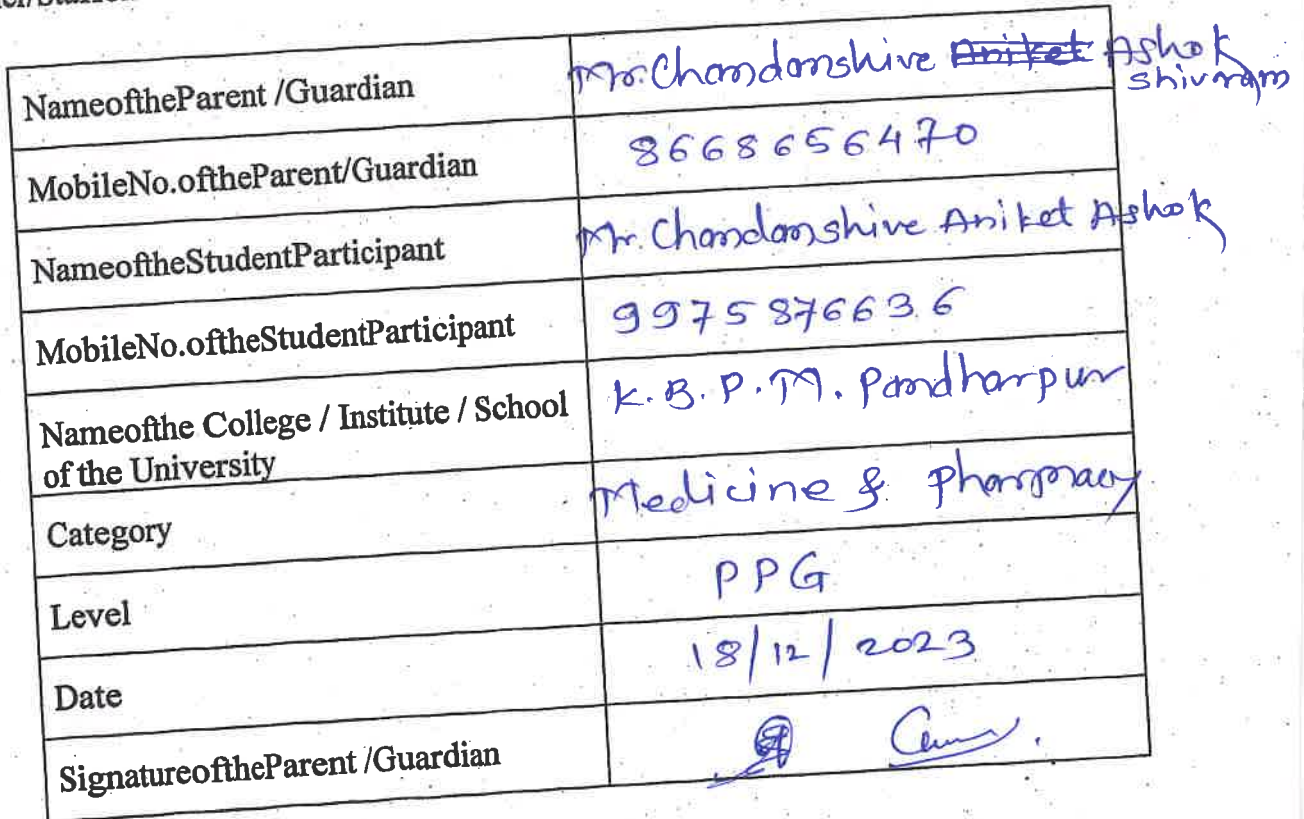 NameoftheParent /Guardian Mr. Chandanshive Aniket Ashok shivram
MobileNo.oftheParent/Guardian 8668656470
NameoftheStudentParticipant Mr. Chandanshive Aniket Ashok
MobileNo.oftheStudentParticipant 9975876636
Nameofthe College / Institute / School K.B.P.M. Pandharpur
of the University
Category Medicine & pharmacy
Level PPG
Date 18/12/2023
SignatureoftheParent /Guardian